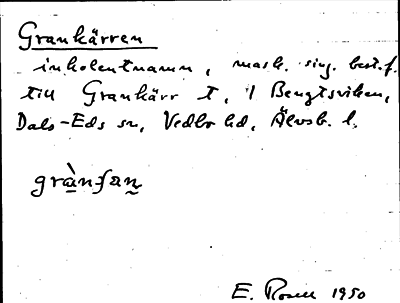 Grankärren
inkolentnamn, mask. sing. best. f.
till Grankärr t, 1 Bengtsviken,
Dals-Eds sn, Vedbo hd, Älvsb. l.
E. Rosell 1950